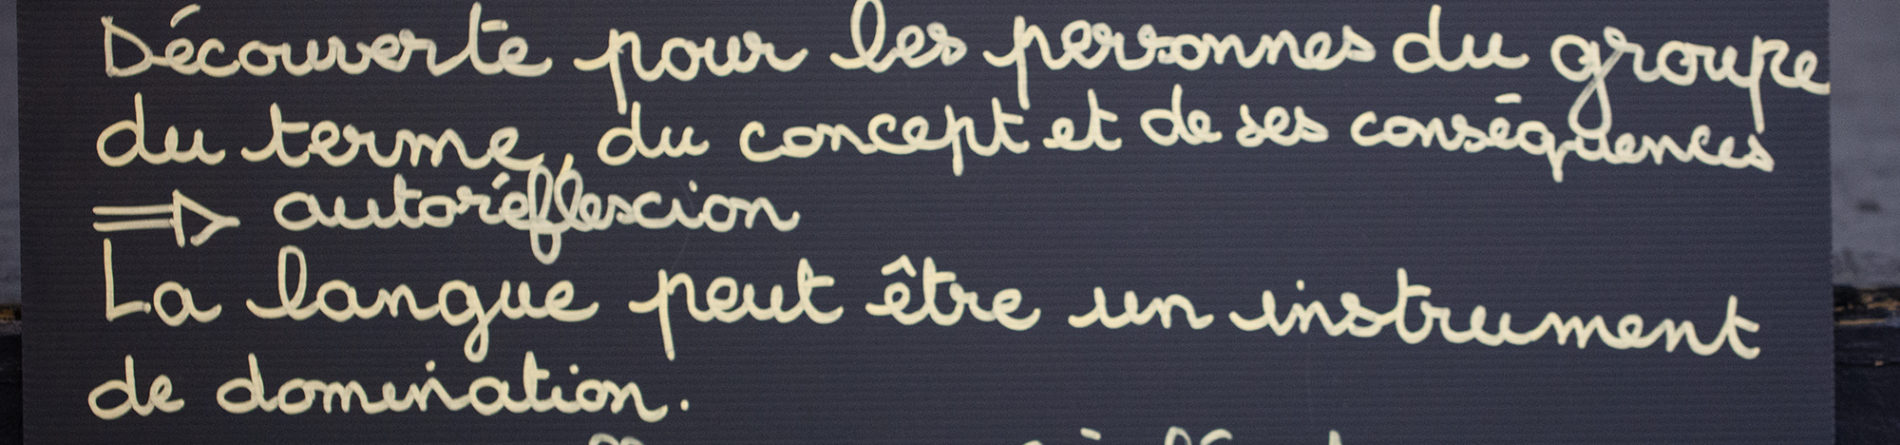 Découverte pour les personnes du groupe
du terme, du concept et de ses conséquences
⇒ autoréflexcion
La langue peut être un instrument
de domination.